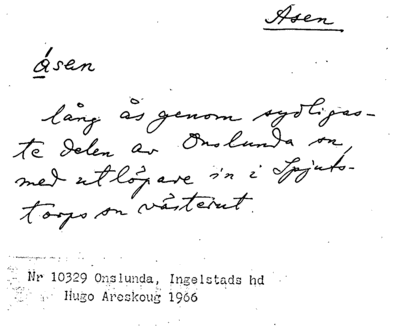 Åsen
åsen
lång ås genom sydligas-
te delen av Onslunda sn,
med utlöpare in i Spjuts-
torps sn västerut.
Nr 10329 Onslunda, Ingelstads hd
Hugo Areskoug 1966